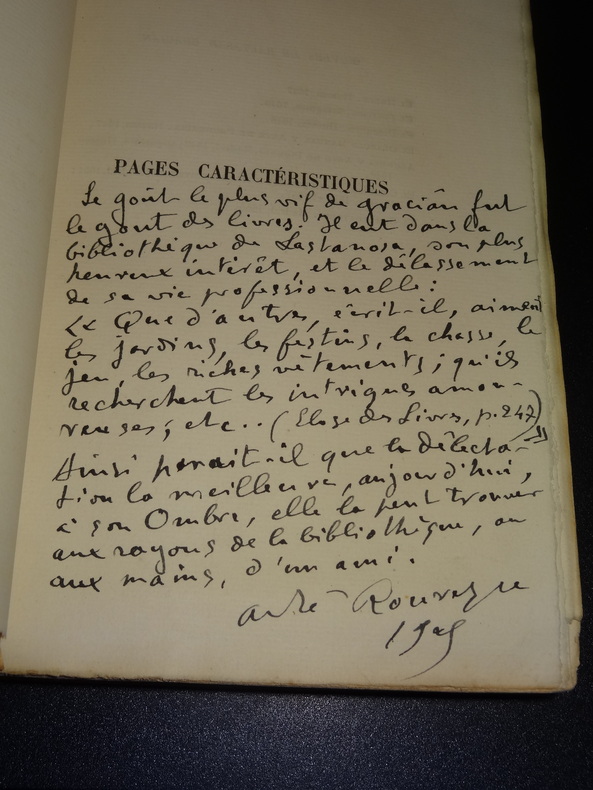 PAGES CARACTÉRISTIQUES
Le goût le plus vif de gracián fut
le goût des livres. Il eut dans la
bibliothèque de Lastanosa, son plus
heureux intérêt, et le délassement
de sa vie professionnelle :
« Que d'autres, écrit-il, aiment
les jardins, les festins, la chasse, le
jeu, les riches vêtements ; qu'ils
recherchent les intrigues amou-
reuses ; etc.. (Eloge des Livres, p. 247)
»
Ainsi parait-il que la délecta-
tion la meilleure, aujourd'hui,
à son Ombre, elle la peut trouver
aux rayons de la bibliothèque, ou
aux mains, d'un ami.
André Rouveyre
1925